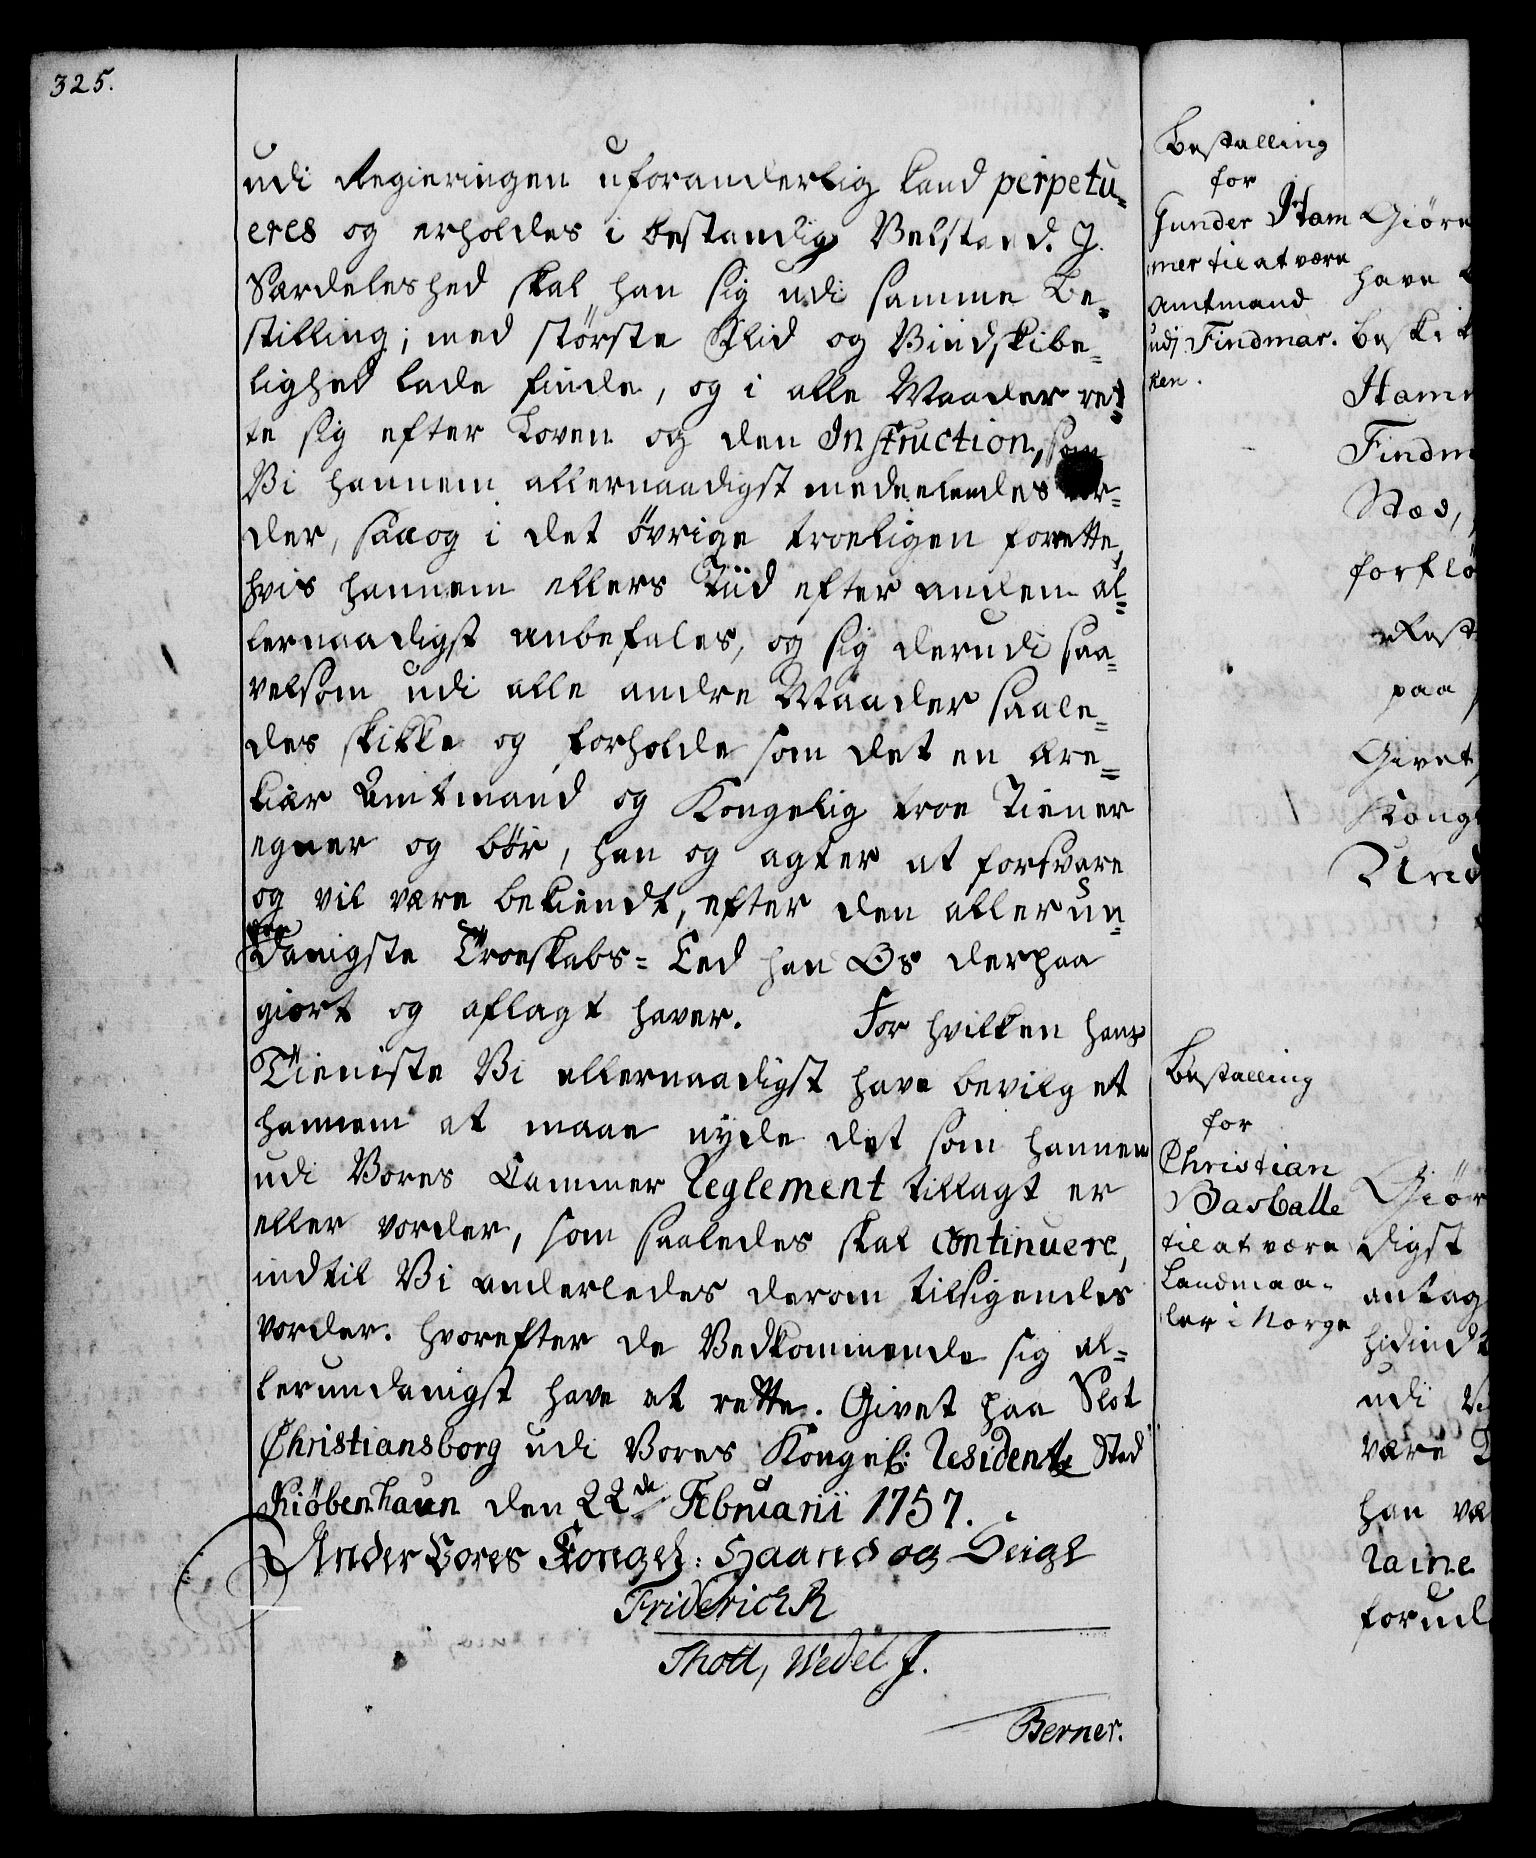 325.
udi Regieringen uforanderlig kand perpetu=
eres og erholdes i bestandig Velstand. J.
Særdeleshed skal han sig udi samme Be=
stilling; med störste Flid og Vindskibe=
lighed lade finde, og i alle Maader ret=
te sig efter Loven og den Instruction, som
Vi hannem allernaadigst meddeelendes vor=
der, saa og i det övrige troeligen forrette,
hvis hannem ellers Tiid efter anden al=
lernaadigst anbefales, og sig derudi saa=
velsom udi alle andre Maader saale=
des skikke og forholde som det en ære=
kiær Amtmand og Kongelig troe Tiener
egner og bör, han og agter at forsvare
og vil være bekiendt, efter den allerun=
danigste Troeskabs= Eed han Os derpaa
giort og aflagt haver. For hvilken hans
Tieniste Vi allernaadigst have bevilget
hannem at maae nyde det som hannem
udi Vores Cammer Reglement tillagt er
eller vorder, som saaledes skal continuere,
indtil Vi anderledes derom tilsigendes
vorder. hvorefter de Vedkommende sig al=
lerundanigst have at rette. Givet paa Slot
Christiansborg udi Vores Kongel: Residentz Stad
Kiöbenhaun den 22de Februarii 1757.
Under Vores Kongel: Haand og Seigl
Friderich R
Thott, Wedel J.
Berner.
Bestalling
for
Gunder Ham
mer til at være
Amtmand
udj Findmar.
ken.
Bestalling
for
Christian
Basballe
til at være
Landmaa-
ler i Norge
Giöre
have
beski
Ham
Findm
Stæd,
forflö
Rest
paa
Givet
Kong
Und
Giör
digst
antag
hidindt
udi V
være
han væ
raine
forud